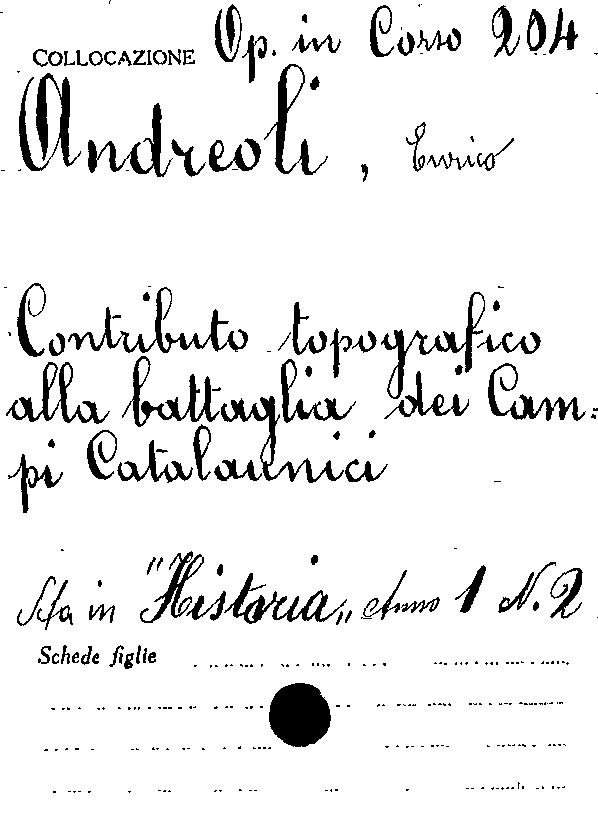 COLLOCAZIONE Op. in Corso 204
Andreoli, Enrico
Contributo topografico
alla battaglia dei Cam:
pi Catalaunici
Sta in "Historia" Anno 1 N. 2
Schede figlie